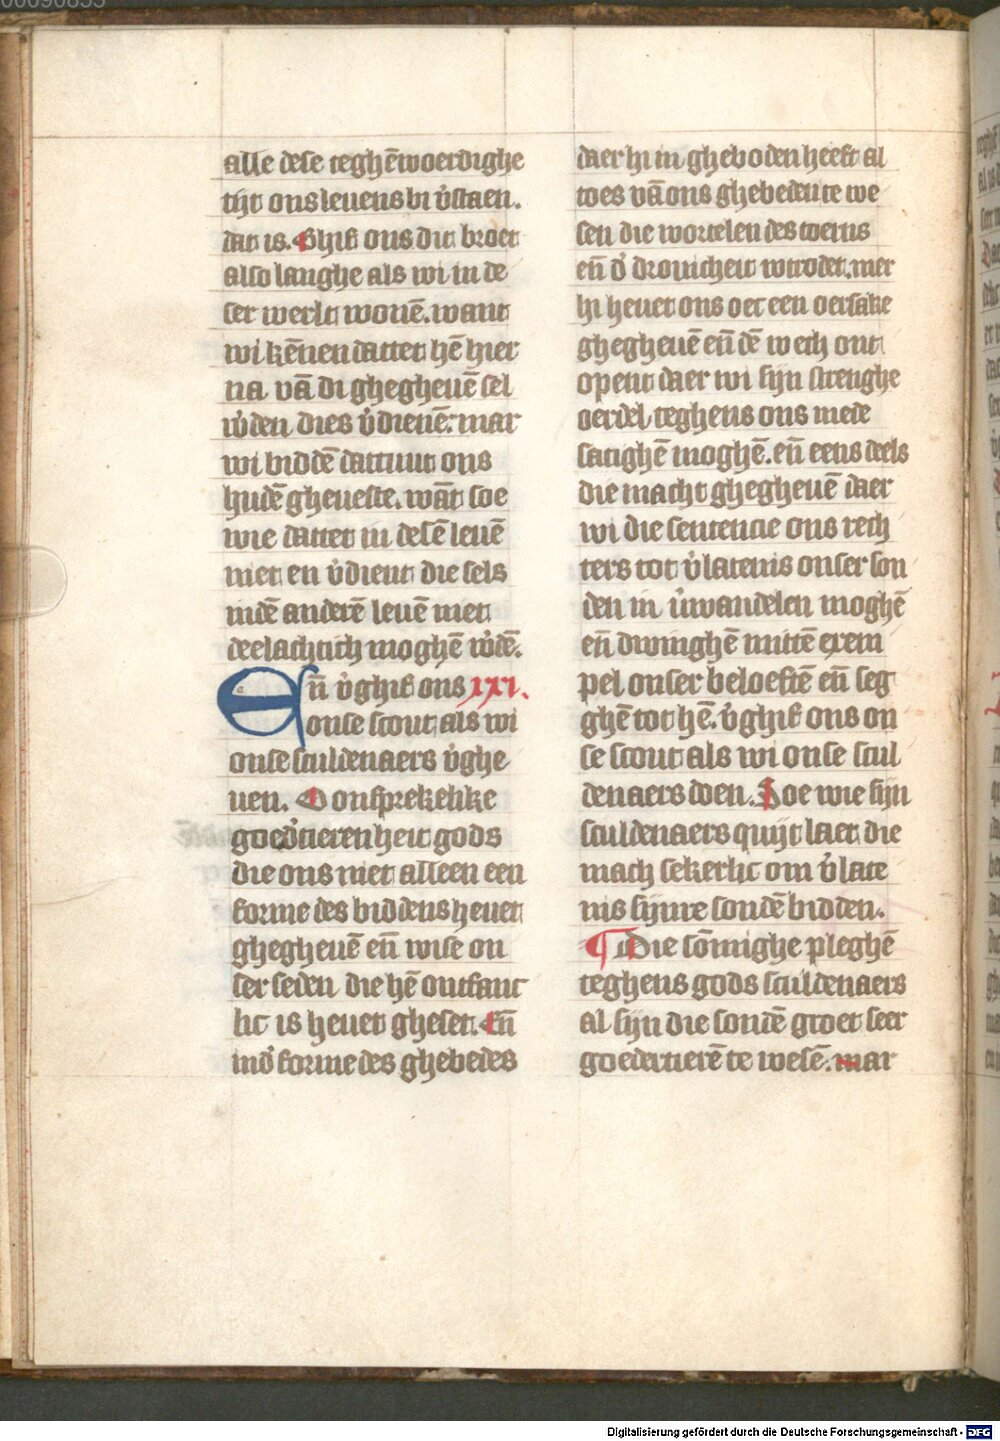 00090855
alle dese teghēwoerdighe
tijt ons leuens bi v̓staen.
dat is. Ghif ons dit broet
also langhe als wi in de
ser werlt wonē. want
wi kēnen dattet hē hier
na vā di ghegheuē sel
w̓den dies v̓dienē: mar
wi biddē dattuut ons
hudē gheueste. wāt soe
wie dattet in desē leuē
niet en v̓dient die sels
indē anderē leuē niet
deelachtich moghē w̓dē.
Eñ v̓ghif ons xxi.
onse scout als wi
onse sculdenaers v̓ghe
uen. O onsprekelike
goed̓tierenheit gods
die ons niet alleen een
forme des biddens heuet
ghegheuē eñ wise on
ser seden die hē ontfanc
lic is heuet gheset. Eñ
mid̓ forme des ghebedes
daer hi in gheboden heeft al
toes vā ons ghebeden te we
sen die wortelen des toerns
eñ d̓ drouicheit wtrodet. mer
hi heuet ons oec een oersake
ghegheuē eñ dē wech ont
opent daer wi sijn strenghe
oerdel teghens ons mede
satighē moghē. eñ eens deels
die macht ghegheuē daer
wi die sentencie ons rech
ters tot v̓latenis onser son
den in v̓wandelen moghē
eñ dwinghē mittē exem
pel onser beloeftē eñ seg
ghē tot hē. v̓ghif ons on
se scout als wi onse scul
denaers doen. Soe wie sijn
sculdenaers quijt laet die
mach sekerlic om v̓late
nis sijnre sondē bidden.
¶ Die sōmighe pleghē
teghens gods sculdenaers
al sijn die sondē groet seer
goedertierē te wesē. mar
Digitalisierung gefördert durch die Deutsche Forschungsgemeinschaft - DFG